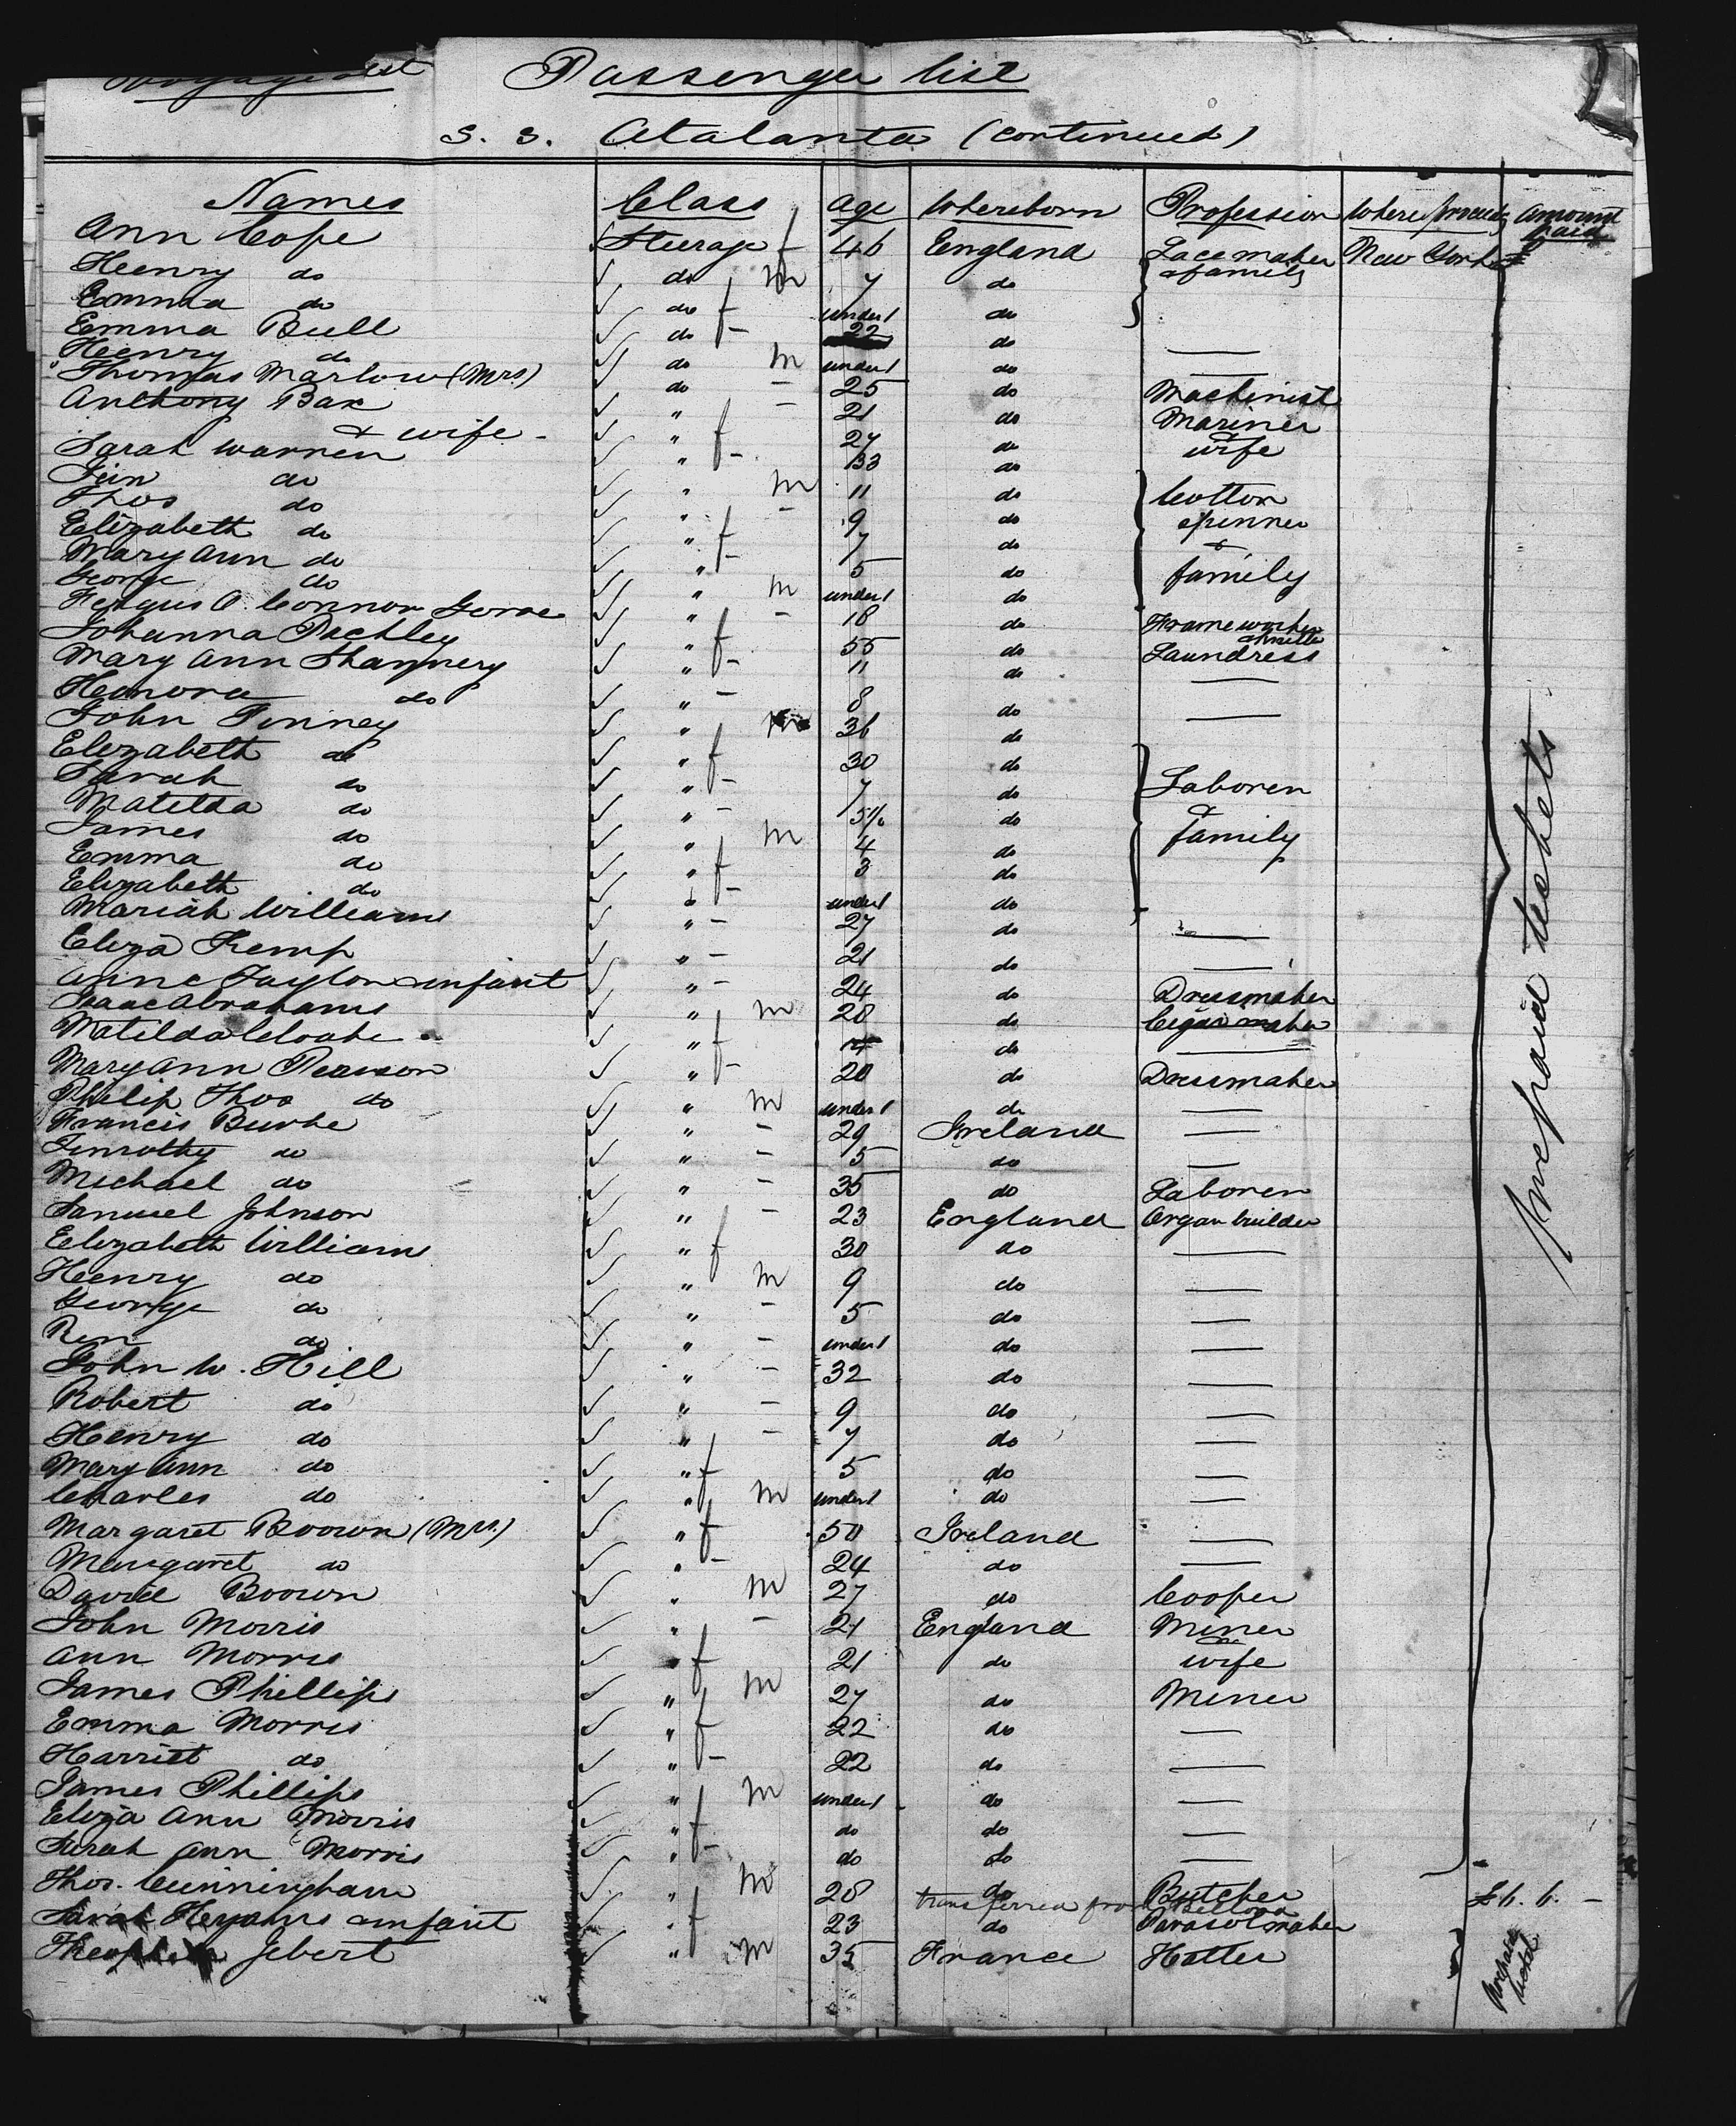 Passenger list
S. S. Atalanta (continued)
Names Class Age Whereborn Profession Where proceeding Amount paid
Ann Cope Steerage f 46 England Lacemaker New York
Henry do do m 7 do & family
Emma do do f under 1 do
Emma Bull do f 22 do —
Henry do do m under 1 do —
Thomas Marlow (Mrs) do - 25 do Machinist
Anthony Bax " - 21 do Mariner
& wife - " f 27 do & wife
Sarah Warren " - 33 do
Jim do " m 11 do Cotton
Thos do " - 9 do spinner
Elizabeth do " f 7 do &
Mary Ann do " - 5 do family
George do " m under 1 do
Fergus O. Connor " - 18 do Frame worker
Johanna " f 55 do Laundress
Mary Ann " - 11 do —
Honora do " - 8 do —
John Pinney " m 36 do
Elizabeth do " f 30 do
Sarah do " - 7 do Laborer
Matilda do " - 5 do &
James do " m 4 do family
Emma do " f 3 do
Elizabeth do " - under 1 do
Mariah Williams " - 27 do —
Eliza Kemp " - 21 do —
Anne Taylor & infant " - 24 do Dressmaker
Isaac Abrahams " m 28 do Cigar maker
Matilda " f 14 do —
Mary Ann Pearson " - 20 do Dressmaker
Philip Thos do " m under 1 do —
Francis Burke " - 29 Ireland —
Timothy do " - 5 do —
Michael do " - 35 do Laborer
Samuel Johnson " - 23 England Organ builder
Elizabeth Williams " f 30 do —
Henry do " m 9 do —
George do " - 5 do —
Ben do " - under 1 do —
John W. Hill " - 32 do —
Robert do " - 9 do —
Henry do " - 7 do —
Mary Ann do " f 5 do —
Charles do " m under 1 do —
Margaret Brown (Mrs.) " f 50 Ireland —
Margaret do " - 24 do —
David Brown " m 27 do Cooper
John Morris " - 21 England Miner
Ann Morris " f 21 do & wife
James Phillips " m 27 do Miner
Emma Morris " f 22 do —
Harriet do " f - 22 do —
James Phillips " m under 1 do —
Eliza Ann Morris " f do do —
Sarah Ann Morris " f - do do —
prepaid tickets
Thos. Cunningham " m 28 do Butcher £6. 6. -
transferred from Bellona
Sarah & infant " f 23 do Parasolmaker
Jebert " m 35 France Hatter
prepaid ticket